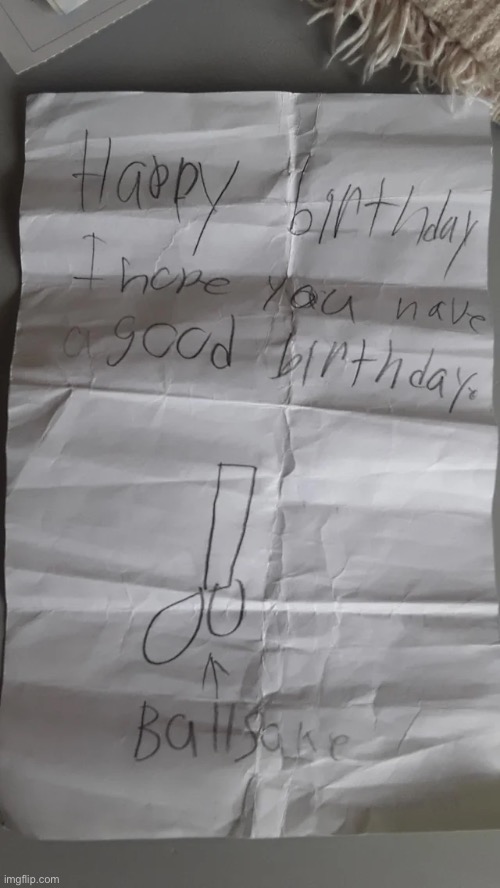 Happy birthday
I hope you have
a good birthday.
Ballsake
imgflip.com